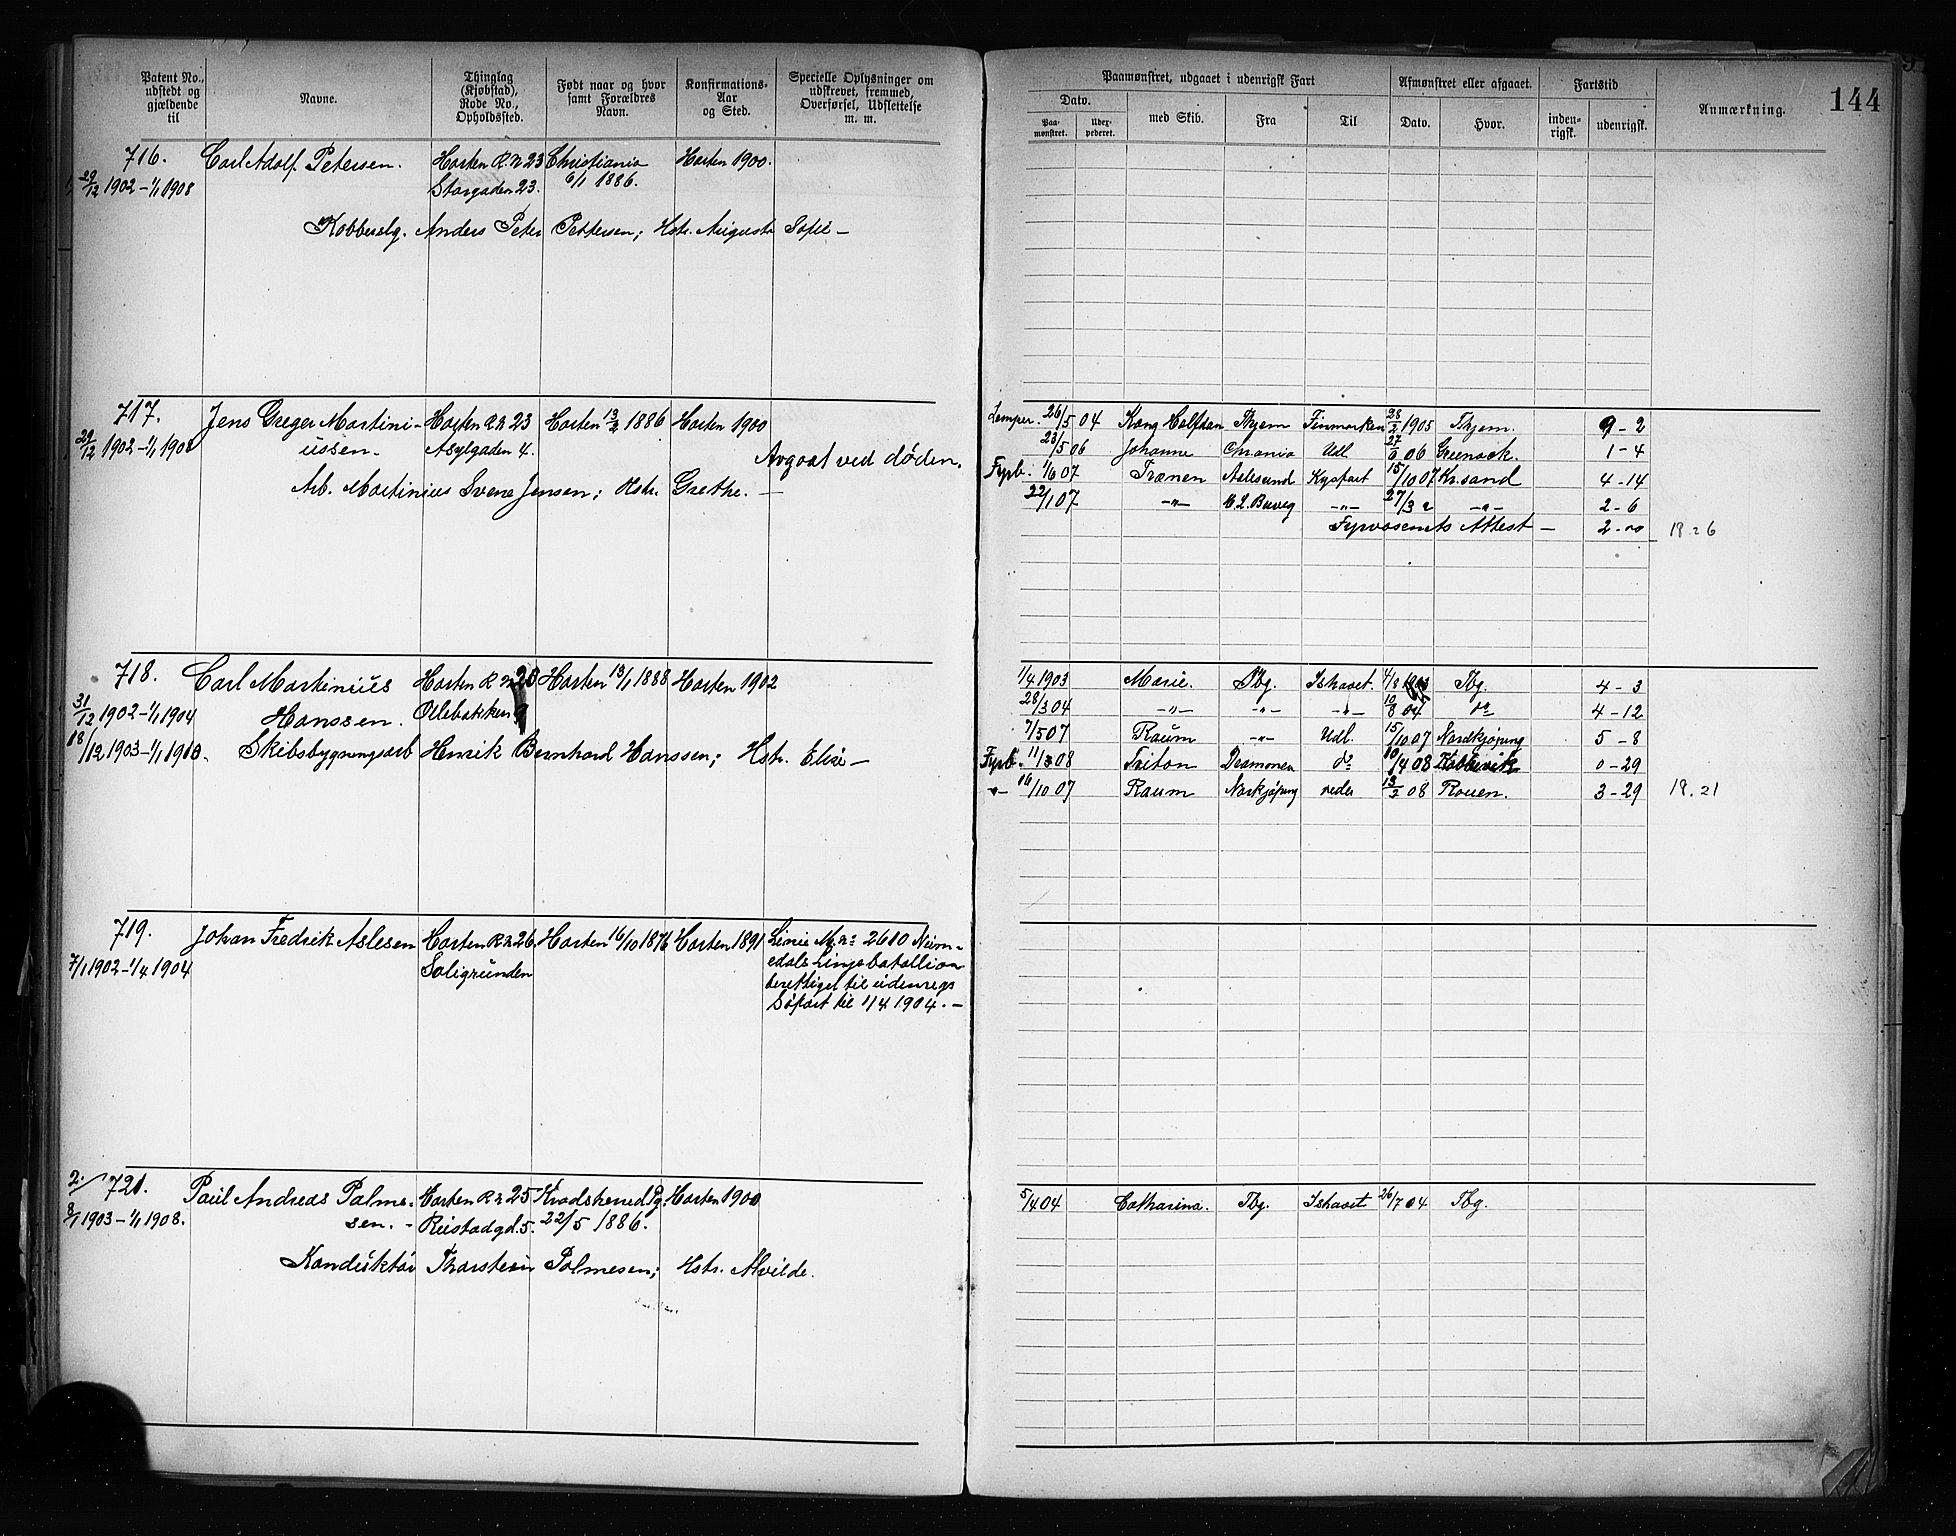 Patent No., udstedt og gjældende til
Navne.
Thinglag (Kjøbstad), Rode No., Opholdssted.
Født naar og hvor samt Forældres Navn.
Konfirmations-Aar og Sted.
Specielle Oplysninger om udskrevet, fremmed, Overførsel, Udslettelse m. m.
Paamønstret, udgaaet i udenrigsk Fart
Afmønstret eller afgaaet.
Fartstid
Anmærkning.
144
Dato.
Paa-mønstret.
Uder-pederet.
med Skib.
Fra
Til
Dato.
Hvor.
inden-rigsk.
udenrigsk.
716. Carl Adolf Petersen. Horten R. N 23 Christiania Horten 1900.
29/12 1902 – 1/1 1908 Storgaden 23. 6/1 1886.
Kobberslg. Anders Peter Pettersen; Hstr. Augusta Sofie –
717. Jens Greger Martini- Horten R. N 23 Horten 13/2 1886 Horten 1900
29/12 1902 – 1/1 1908 ussen. Asylgaden 4.
Avgaat ved døden.
Arb. Martinius Svene Jensen; Hstr. Grethe. –
Lemper. 26/5 04 Kong Halfdan Thjem Finmarken 28/2 1905 Thjem. 9 – 2
23/5 06 Johanne Chrania Udl 06 Greenock. 1 – 4
Fyrb. 1/6 07 Tranen Aalesund Kysfart 15/10 07 Kr.sand 4 – 14
22/1 07 –"– –"– 27/3 –"– 2 – 6
Fyrvæsenets Attest – 2 – 18 – 6
718. Carl Martinius Horten R. N 20 Horten 13/1 1888 Horten 1902
31/12 1902 – 1/1 1904 Hanssen. Ollebakken 9
18/12 1903 – 1/1 1910. Skibsbygningsarb Henrik Bernhard Hanssen; Hstr. Elise –
1/4 1903 Marie. Tbg. Ishavet. 4/8 1903 Tbg. 4 – 3
28/3 04 –"– –"– –"– 10/8 04 do 4 – 12
7/5 07 Raum –"– Udl. 15/10 07 Nordkjøping 5 – 8
Fyrb. 11/3 08 Triton Drammen do 10/4 08 0 – 29
–"– 16/10 07 Raum Norkjøping 13/2 08 Rouen. 3 – 29 18. 21
719. Johan Fredrik Aslesen Horten R. N 26. Horten 16/10 1876 Horten 1891 Linie M. No 2610 Num-
7/1 1902 – 1/4 1904 Soligrunden edals Linjebatallion
berettiget til udenrigs
Søfart til 1/4 1904. –
2. / 721. Paul Andreas Palme- Horten R. N 25 Krødsherred Pg. Horten 1900
8/1 1903 – 1/1 1908. sen. – Rustadgd. 5. 22/5 1886.
Konduktør Thorstein Palmesen; Hstr. Alvilde.
5/4 04 Catharina. Tbg. Ishavet 26/7 04 Tbg.